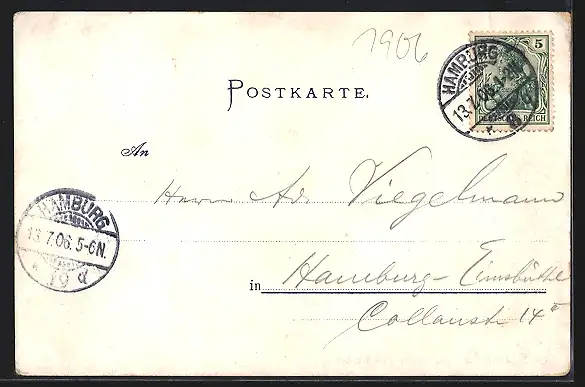 1906
5
DEUTSCHES REICH
HAMBURG
13.7.06.
POSTKARTE.
An
Herrn Ad. Viegelmann
HAMBURG
13.7.06. 5-6N.
in Hamburg-Eimsbüttel
Collaustr 14 II